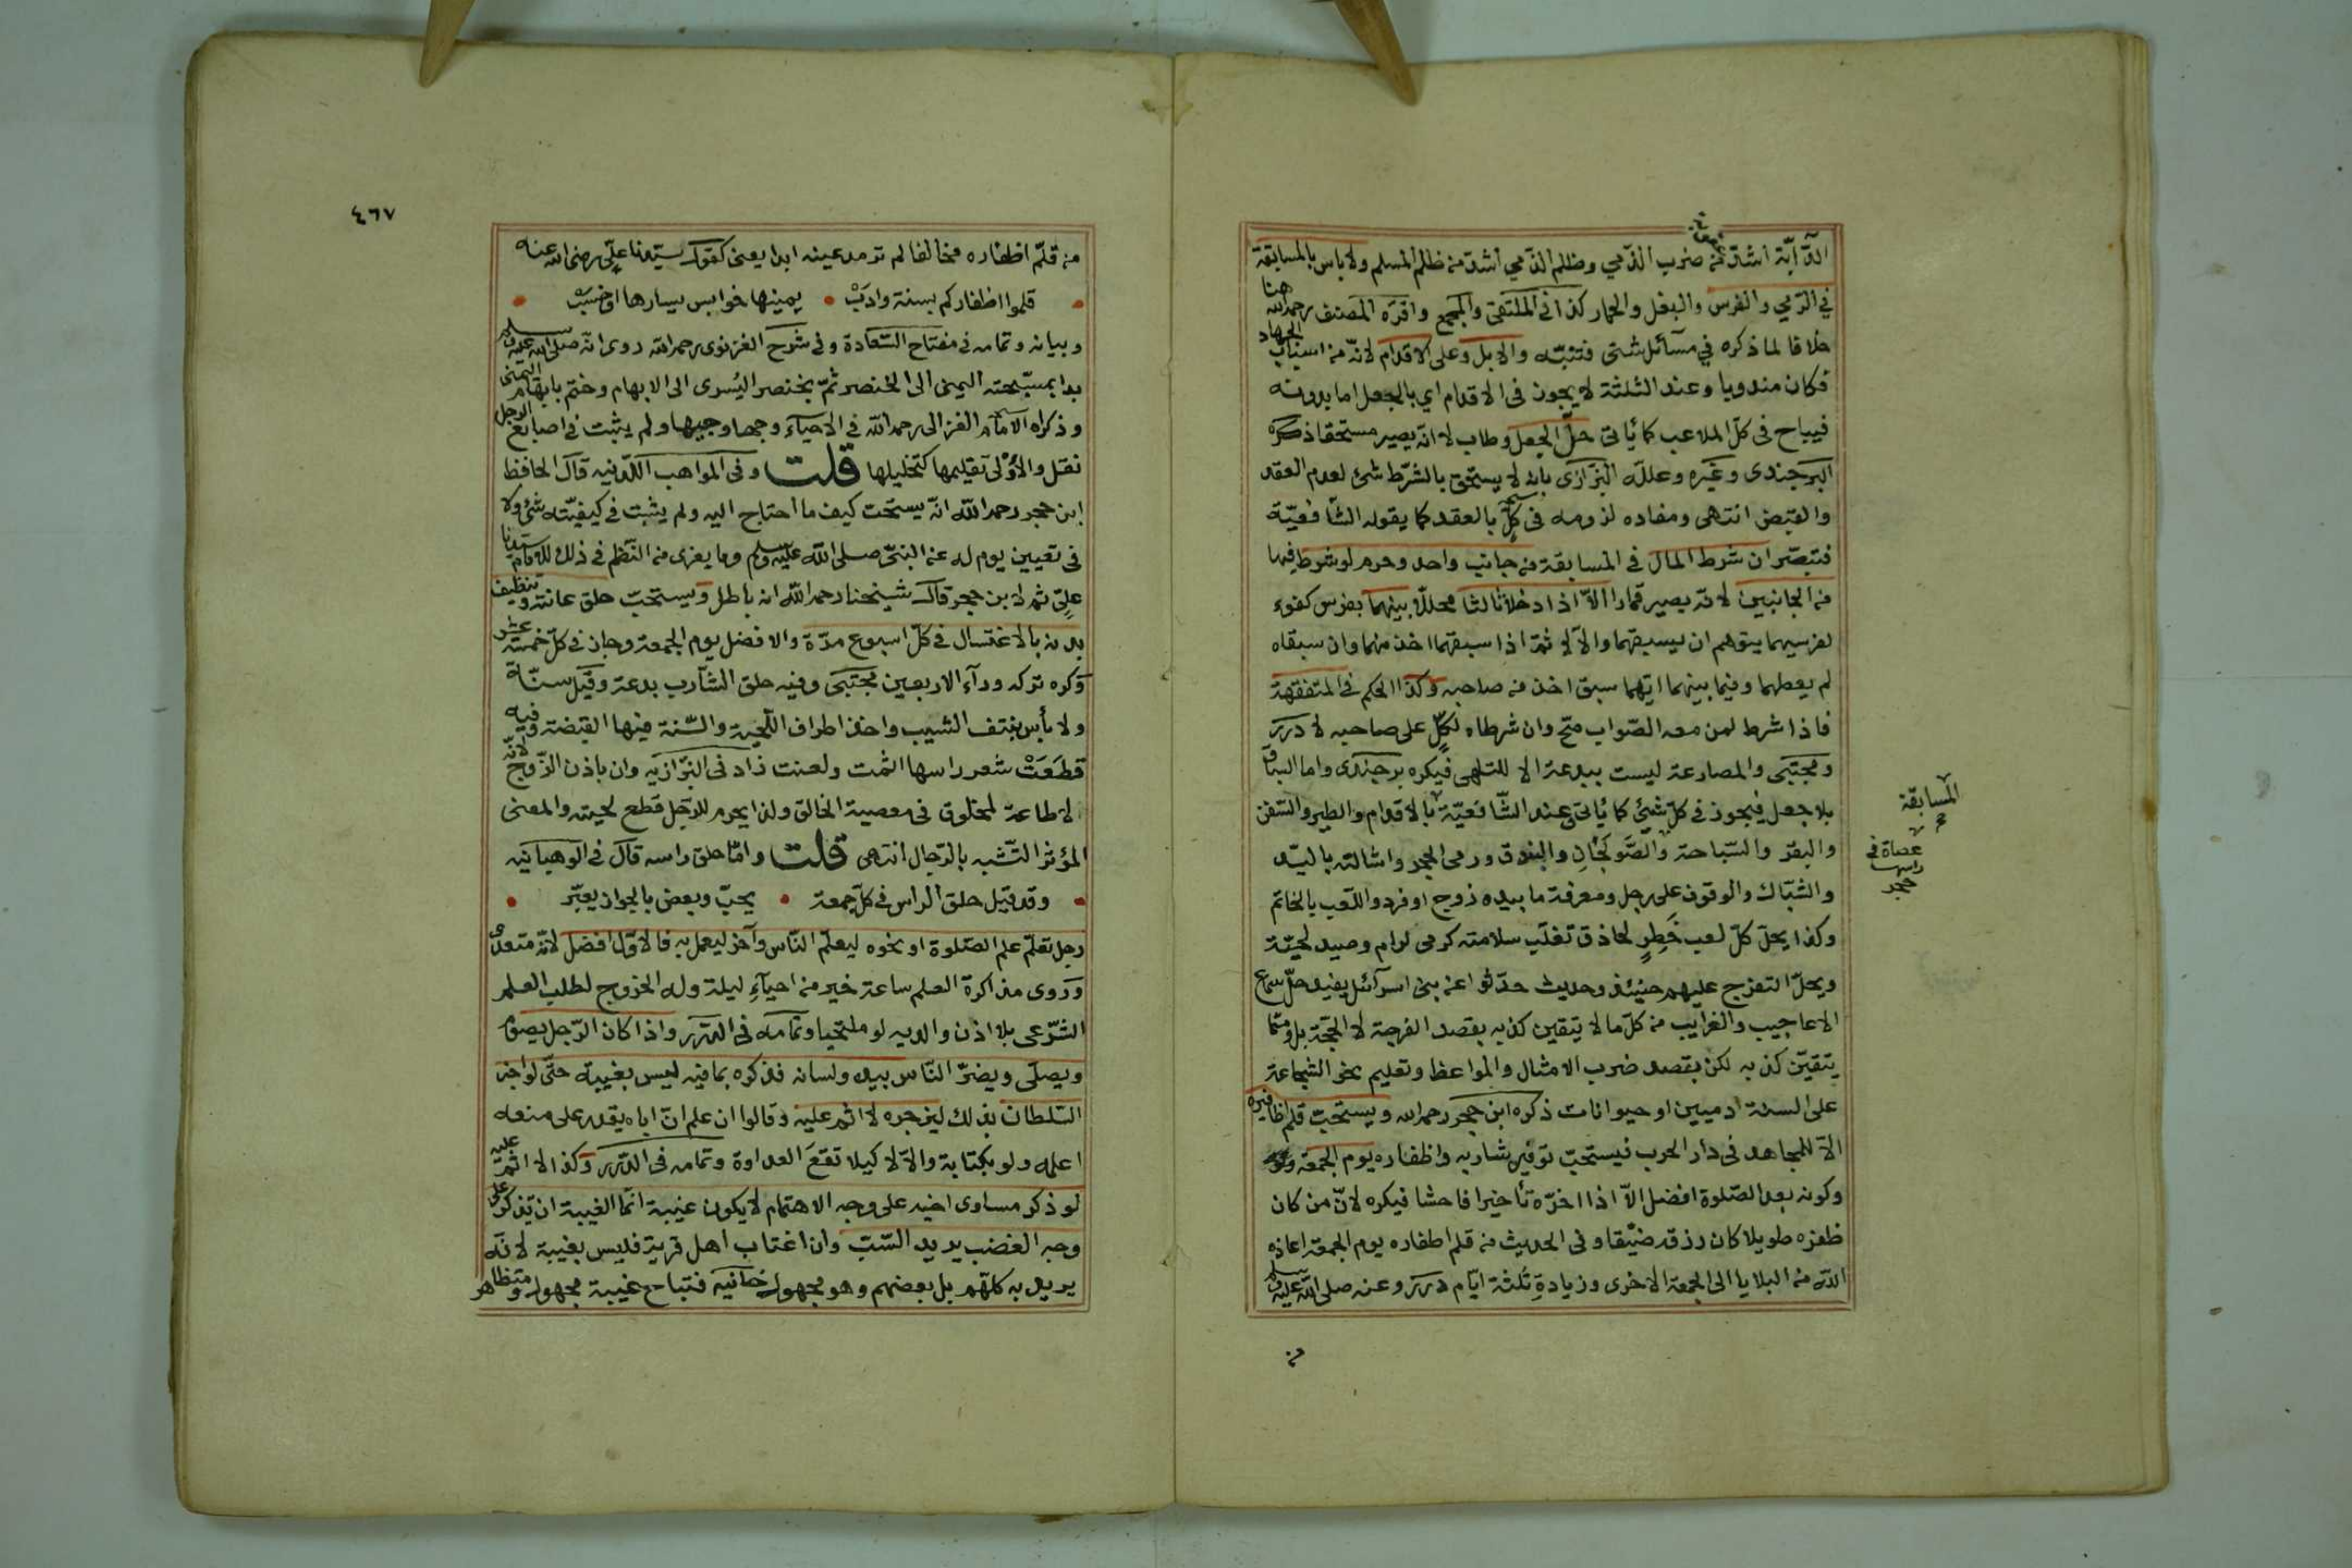 الدّابّة اشدّ من ضرب الذّمي وظلم الذّمي اشدّ من ظلم المسلم ولا باس بالمسابقة
في الرّمي والفرس والبغل والحمار كذا في الملتقى والمجمع واقرّه المصنف رحمه الله هنا
خلافا لما ذكره في مسآئل شتى فتنبّه والابل وعلى الاقدام لانّه من اسباب الجهاد
فكان مندوبا وعند الثلثة لا يجوز فى الاقدام اي بالجعل اما بدونه
فيباح فى كلّ الملاعب كما يأتى حلّ الجعل وطاب لا انّه يصير مستحقا ذكره
البرجندى وغيره وعلله البزازى بانه لا يستحق بالشّرط شئ لعدم العقد
والقبض انتهى ومفاده لزومه فى كلّ بالعقد كما يقوله الشّافعيّة
فتبصّر ان شرط المال فى المسابقة من جانب واحد وحرم لو شرط فيها
من الجانبين لانّه يصير قمارا الاّ اذا ادخلا ثالثا محللا بينهما بفرس كفوء
لفرسيهما يتوهم ان يسبقهما والاّ لا ثمّ اذا سبقهما اخذ منهما وان سبقاه
لم يعطهما وفيما بينهما ايّهما سبق اخذ من صاحبه وكذا الحكم فى المتفقهة
فاذا شرط لمن معه الصّواب صح وان شرطاه لكلّ على صاحبه لا درر
ومجتبى والمصارعة ليست ببدعة الا للتلهى فيكره برجندى واما السباق
بلا جعل فيجوز فى كلّ شئ كما يأتى وعند الشّافعيّة بالاقدام والطير والسّفن
والبقر والسّباحة والصّولجان والبندق ورمى الحجر واشالته باليد
والشبّاك والوقوف على رجل ومعرفة ما بيده زوج او فرد واللّعب بالخاتم
وكذا يحلّ كلّ لعب خَطِرٍ لحاذق تغلب سلامته كرمى لرام وصيد لحيّة
ويحلّ التفرج عليهم حينئذ وحديث حدّثوا عن بنى اسرآئل يفيد حلّ سماع
الاعاجيب والغرايب من كلّ ما لا يتيقن كذبه بقصد الفرجة لا الحجّة بل وما
يتيقّن كذبه لكن بقصد ضرب الامثال والمواعظ وتعليم نحو الشجاعة
على السنة ادميين او حيوانات ذكره ابن حجر رحمه الله ويستحبّ قلم اظافيره
الاّ للمجاهد فى دار الحرب فيستحبّ توفير شاربه واظفاره يوم الجمعة
وكونه بعد الصّلوة افضل الاّ اذا اخرّه تأخيرا فاحشا فيكره لانّ من كان
ظفره طويلا كان رزقه ضيّقا وفى الحديث من قلم اظفاره يوم الجمعة اعاذه
الله من البلايا الى الجمعة الاخرى وزيادة ثلثة ايّام درر وعنه صلى الله عليه وسلم
من
المسابقة
عصاة فى
راسها
حجر
٤٦٧
من قلّم اظفاره مخالفا لم ترمد عينه ابدا يعنى كقول سيّدنا علىّ رضى الله عنه
قلموا اظفاركم بسنة وادبْ • يمينها خوابس يسارها اوخسبْ
وبيانه وتمامه فى مفتاح السّعادة وفى شرح الغزنوى رحمه الله روى انّه صلى الله عليه وسلم
بدا بمسبّحته اليمنى الى الخنصر ثمّ بخنصر اليُسرى الى الابهام وختم بابهام اليمنى
وذكراه الامام الغزالى رحمه الله فى الاحيآء وجها وجيها ولم يثبت فى اصابع الرجل
نقل والأوْلى تقليمها كتخليلها قلت وفى المواهب اللّدنيه قال الحافظ
ابن حجر رحمه الله انّه يستحبّ كيف ما احتاج اليه ولم يثبت فى كيفيّته شئ ولا
فى تعيين يوم له عن النبىّ صلى الله عليه وسلم وما يعزى من النّظم فى ذلك للامام سيدنا
علىّ ثم لابن حجر قال شيخنا رحمه الله انه باطل ويستحبّ حلق عانته وتنظيف
بدنه بالاغتسال فى كلّ اسبوع مرّة والافضل يوم الجمعة وجاز فى كلّ خمسة عشر
وكره تركه ورآء الاربعين مجتبى وفيه حلق الشارب بدعة وقيل سنّة
ولا بأس بنتف الشيب واخذ اطراف اللّحية والسّنة فيها القبضة وفيه
قطعَتْ شعر راسها اثمت ولعنت زاد فى البزّازيه وان باذن الزّوج لانّه
لا طاعة لمخلوق فى معصية الخالق ولذا يحرم للرّجل قطع لحيته والمعنى
المؤثر التّشبه بالرّجال انتهى قلت وامّا حلق راسه قال فى الوهبانيه
• وقد قيل حلق الراس فى كلّ جمعة • يحبّ وبعض بالجواز يعبّر •
رجل تعلّم علم الصّلوة او نحوه ليعلّم النّاس وآخر ليعمل به فالاوّل افضل لانّه متعدّ
وروى مذاكرة العلم ساعة خير من احيآء ليلة وله الخروج لطلب العلم
الشّرعى بلا اذن والديه لو ملتحيا وتمامه فى الدّرر واذا كان الرّجل يصوم
ويصلّى ويضرّ النّاس بيده ولسانه فذكره بما فيه ليس بغيبة حتّى لو اخبر
السّلطان بذلك ليزجره لا اثم عليه وقالوا ان علم انّ اباه يقدر على منعه
اعلمه ولو بكتابة والاّ لا كيلا تقع العداوة وتمامه فى الدّرر وكذا لا اثم عليه
لو ذكر مساوى اخيه على وجه الاهتمام لا يكون غيبة انّما الغيبة ان يّذكر على
وجه الغضب يريد السّبّ وان اغتاب اهل قرية فليس بغيبة لانّه
يريد به كلّهم بل بعضهم وهو مجهول خانيه فتباح غيبة مجهول ومتظاهر